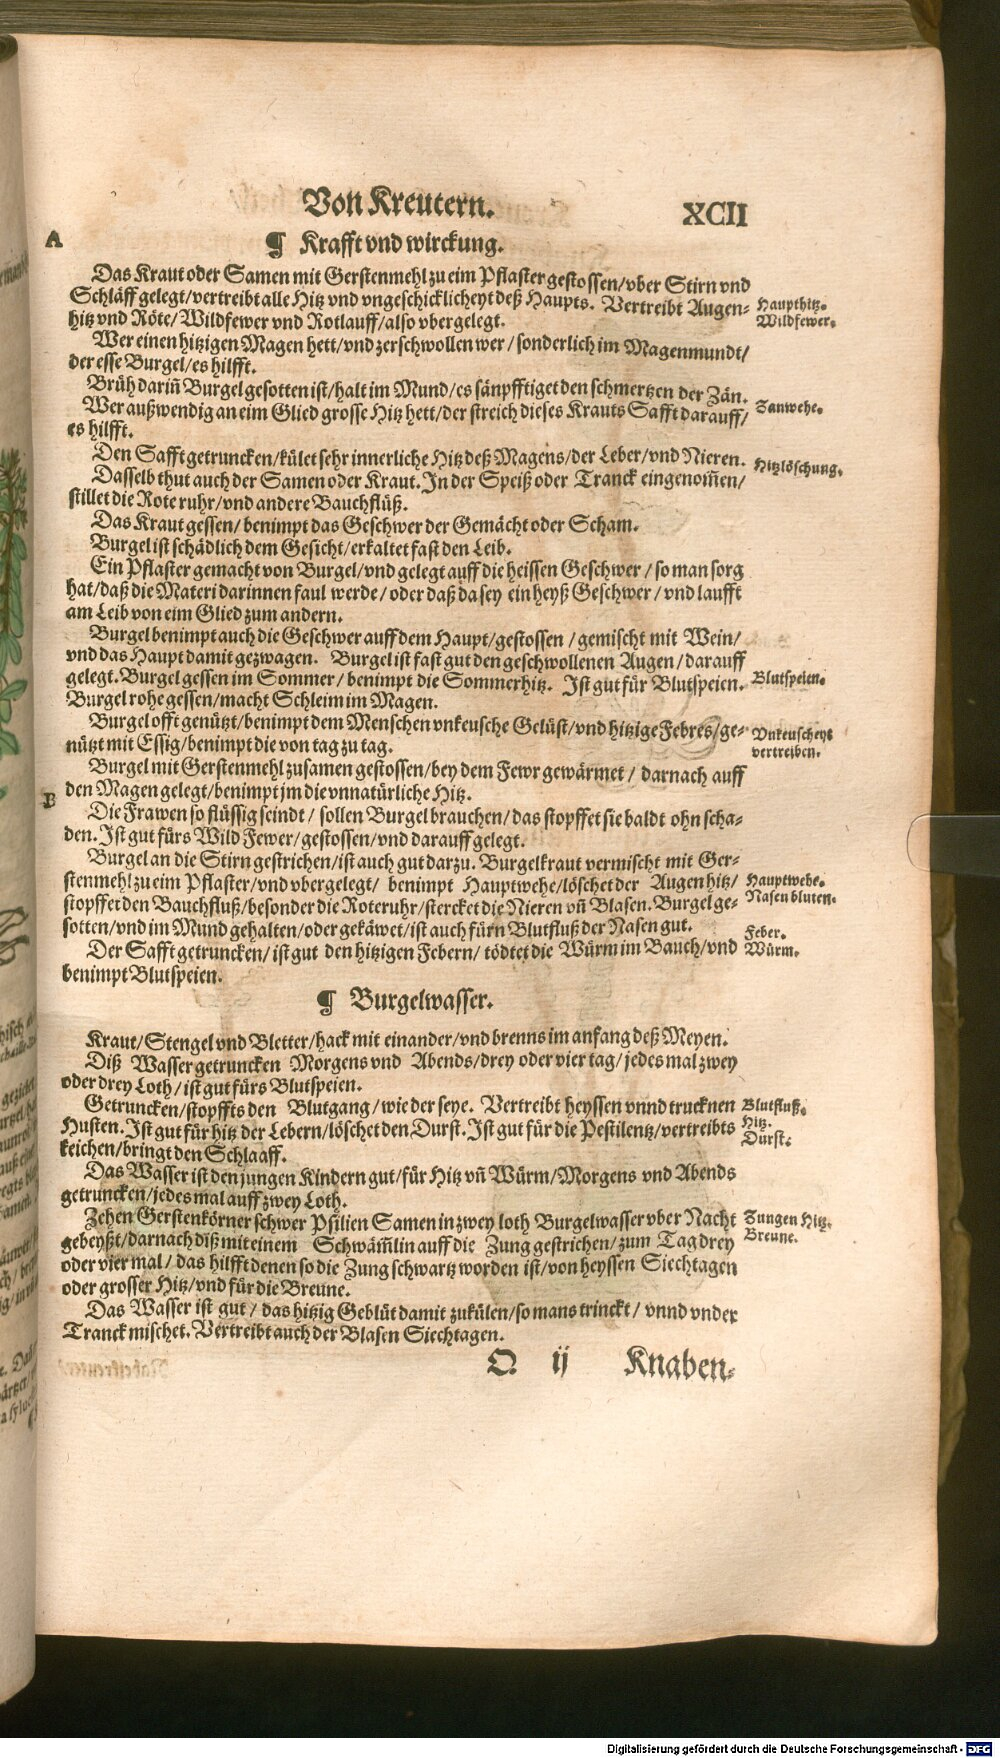 Von Kreutern.
XCII
A
¶ Krafft vnd wirckung.
Das Kraut oder Samen mit Gerstenmehl zu eim Pflaster gestossen/vber Stirn vnd
Schläff gelegt/vertreibt alle Hitz vnd vngeschicklicheyt deß Haupts. Vertreibt Augen-
Haupthitz.
hitz vnd Röte/Wildfewer vnd Rotlauff/also vbergelegt.
Wildfewer.
Wer einen hitzigen Magen hett/vnd zerschwollen wer/sonderlich im Magenmundt/
der esse Burgel/es hilfft.
Brüh dariñ Burgel gesotten ist/halt im Mund/es sänpfftiget den schmertzen der Zän.
Wer außwendig an eim Glied grosse Hitz hett/der streich dieses Krauts Safft darauff/
Zanwehe.
es hilfft.
Den Safft getruncken/kület sehr innerliche Hitz deß Magens/der Leber/vnd Nieren.
Hitzlöschung.
Dasselb thut auch der Samen oder Kraut. In der Speiß oder Tranck eingenom̃en/
stillet die Rote ruhr/vnd andere Bauchflüß.
Das Kraut gessen/benimpt das Geschwer der Gemächt oder Scham.
Burgel ist schädlich dem Gesicht/erkaltet fast den Leib.
Ein Pflaster gemacht von Burgel/vnd gelegt auff die heissen Geschwer/so man sorg
hat/daß die Materi darinnen faul werde/oder daß da sey ein heyß Geschwer/vnd laufft
am Leib von eim Glied zum andern.
Burgel benimpt auch die Geschwer auff dem Haupt/gestossen/gemischt mit Wein/
vnd das Haupt damit gezwagen. Burgel ist fast gut den geschwollenen Augen/darauff
gelegt. Burgel gessen im Sommer/benimpt die Sommerhitz. Ist gut für Blutspeien.
Blutspeien.
Burgel rohe gessen/macht Schleim im Magen.
Burgel offt genützt/benimpt dem Menschen vnkeusche Gelüst/vnd hitzige Febres/ge-
Vnkeuscheyt
nützt mit Essig/benimpt die von tag zu tag.
vertreiben.
Burgel mit Gerstenmehl zusamen gestossen/bey dem Fewr gewärmet/darnach auff
den Magen gelegt/benimpt jm die vnnatürliche Hitz.
B
Die Frawen so flüssig seindt/sollen Burgel brauchen/das stopffet sie baldt ohn scha-
den. Ist gut fürs Wild Fewer/gestossen/vnd darauff gelegt.
Burgel an die Stirn gestrichen/ist auch gut darzu. Burgelkraut vermischt mit Ger-
stenmehl zu eim Pflaster/vnd vbergelegt/benimpt Hauptwehe/löschet der Augen hitz/
Hauptwehe.
stopffet den Bauchfluß/besonder die Roteruhr/stercket die Nieren vñ Blasen. Burgel ge-
Nasen bluten.
sotten/vnd im Mund gehalten/oder gekäwet/ist auch fürn Blutfluß der Nasen gut.
Feber.
Der Safft getruncken/ist gut den hitzigen Febern/tödtet die Würm im Bauch/vnd
Würm.
benimpt Blutspeien.
¶ Burgelwasser.
Kraut/Stengel vnd Bletter/hack mit einander/vnd brenns im anfang deß Meyen.
Diß Wasser getruncken Morgens vnd Abends/drey oder vier tag/jedes mal zwey
oder drey Loth/ist gut fürs Blutspeien.
Getruncken/stopffts den Blutgang/wie der seye. Vertreibt heyssen vnnd trucknen
Blutfluß.
Husten. Ist gut für hitz der Lebern/löschet den Durst. Ist gut für die Pestilentz/vertreibts
Hitz.
Durst.
keichen/bringt den Schlaaff.
Das Wasser ist den jungen Kindern gut/für Hitz vñ Würm/Morgens vnd Abends
getruncken/jedes mal auff zwey Loth.
Zehen Gerstenkörner schwer Psilien Samen in zwey loth Burgelwasser vber Nacht
Zungen Hitz.
gebeyßt/darnach diß mit einem Schwäm̃lin auff die Zung gestrichen/zum Tag drey
Breune.
oder vier mal/das hilfft denen so die Zung schwartz worden ist/von heyssen Siechtagen
oder grosser Hitz/vnd für die Breune.
Das Wasser ist gut/das hitzig Geblüt damit zukülen/so mans trinckt/vnnd vnder
Tranck mischet. Vertreibt auch der Blasen Siechtagen.
O ij
Knaben-
Digitalisierung gefördert durch die Deutsche Forschungsgemeinschaft - DFG